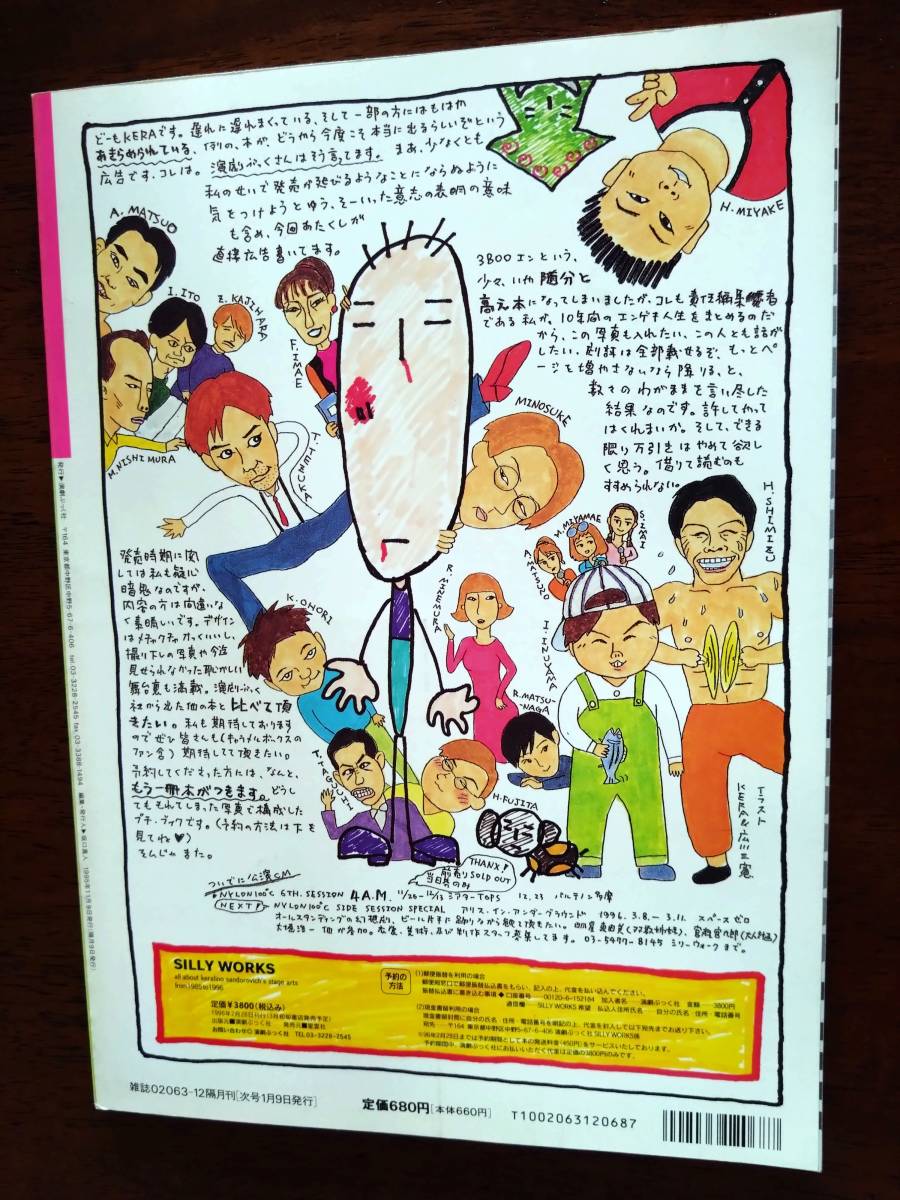 どーもKERAです。遅れに遅れまくっている、そして一部の方にはもはや
あきらめられている、例の本が、どうやら今度こそ本当に出るらしいぞという
広告です、コレは。演劇ぶっくさんはそう言ってます。まあ、少なくとも
私のせいで発売が延びるようなことにならぬように
気をつけようとゆう、そーいった意志の表明の意味
も含め、今回あたくしが
直接広告書いてます。
H. MIYAKE
A. MATSUO
I. ITO
E. KAJIHARA
F. IMAE
M. NISHIMURA
T. TEZUKA
MINOSUKE
3800エンという、
少々、いや随分と
高え本になってしまいましたが、コレも責任編集者
である私が、10年間のエンゲキ人生をまとめるのだ
から、この写真も入れたい、この人とも話が
したい、劇評は全部載せるぞ、もっとペ
ージを増やさないなら降りる、と、
数々のわがままを言い尽した
結果なのです。許してやって
はくれまいか。そして、できる
限り万引きはやめて欲し
く思う。借りて読むのも
すすめられない。
H. SHIMIZU
S. IMAI
M. MIYAMAE
A. MATSUO
R. MINEMURA
I. INUYAMA
K. OHORI
R. MATSU-
NAGA
T. TAGUCHI
H. FUJITA
発売時期に関
しては私も疑心
暗鬼なのですが、
内容の方は間違いな
く素晴しいです。デザイン
はメチャクチャかっくいいし、
撮り下しの写真や今迄
見せられなかった恥かしい
舞台裏も満載。演劇ぶっく
社から出た他の本と比べて頂
きたい。私も期待しております
のでぜひ皆さんも(キャラメルボックスの
ファン含)期待してて頂きたい。
予約してくださった方には、なんと、
もう一冊本がつきます。どうし
てももれてしまった写真で構成した
プチ・ブックです。(予約の方法は下を
見てね♥)
そんじゃまた。
イラスト
KERA&広川三憲
ついでに公演CM
THANX!
前売りSOLD OUT
当日券のみ
NYLON100℃ 6TH. SESSION 4 A.M. 11/26-12/13 シアターTOPS 12.23 パルテノン多摩
NEXT! NYLON100℃ SIDE SESSION SPECIAL アリス・イン・アンダーグラウンド 1996. 3.8.-3.11. スペースゼロ
オールスタンディングの幻想劇、ビール片手に踊りながら観て頂きたい。
03-5477-8145 シリーウォークまで。
SILLY WORKS
all about keralino sandorovich's stage arts
from1985to1996
定価¥3800(税込み)
出版元■演劇ぶっく社 発売元■星雲社
お問い合わせ■演劇ぶっく社 TEL.03-3228-2545
予約の
方法
(1)郵便振替を利用の場合
郵便局窓口で郵便振替払込書をもらい、記入の上、代金を払い込んでください。
振替払込書に書き込む事項◆口座番号 00120-6-152184 加入者名 演劇ぶっく社 金額 3800円
通信欄 SILLY WORKS 希望 払込人住所氏名 自分の氏名・住所・電話番号
(2)現金書留利用の場合
現金書留封筒に自分の氏名・住所・電話番号を明記の上、代金を封入して以下宛先までお送り下さい。
宛先──〒164 東京都中野区中野5-67-6-406 演劇ぶっく社 SILLY WORKS係
※96年2月29日までは予約期間として本の発送料金(450円)をサービスいたしております。
予約期間中、演劇ぶっく社にお払いいただく代金は定価の3800円のみです。
発行▶演劇ぶっく社 〒164 東京都中野区中野5-67-6-406 tel.03-3228-2545 fax.03-3388-1494 編集・発行人▶坂口真人 1995年11月9日発行(隔月9日発行)
雑誌02063-12隔月刊[次号1月9日発行]
定価680円[本体660円]
T1002063120687